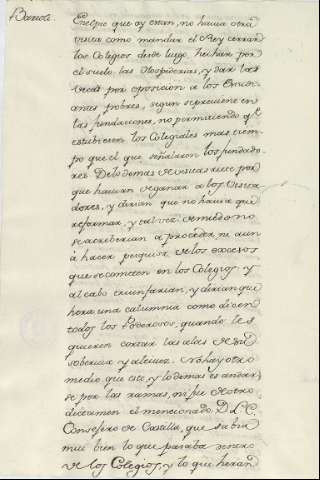 Barrot.
En el pie que oy estan, no havia otra
visita como mandar el Rey cerrar
los Colegios desde luego, hechar por
el suelo las Hospederias, y dar las
Vecas por oposicion a los
pobres, segun se previene en
las fundaciones, no permitiendo qe
estubiesen los Colegiales mas tiem-
po que el que señalaron los fundado-
res. De lo demas de visitas será por
que havian de ganar a los Visita-
dores, y dirian que no havia que
reformar, y tal vez de miedo no
se atreberian a proceder, ni aun
à hacer pesquisa de los excesos
que se cometen en los Colegios, y
al cabo triunfarian, y dirian que
hera una calumnia como dicen
todos los Poderosos, quando les
quieren cortar las alas de su
soberuia y altiuez. No hay otro
medio que este, y lo demas es andar
se por las ramas, ni fue de otro
dictamen el mencionado D. L. C.
Consejero de Castilla, que sabia
mui bien lo que pasaba dentro
de los Colegios, y lo que heran